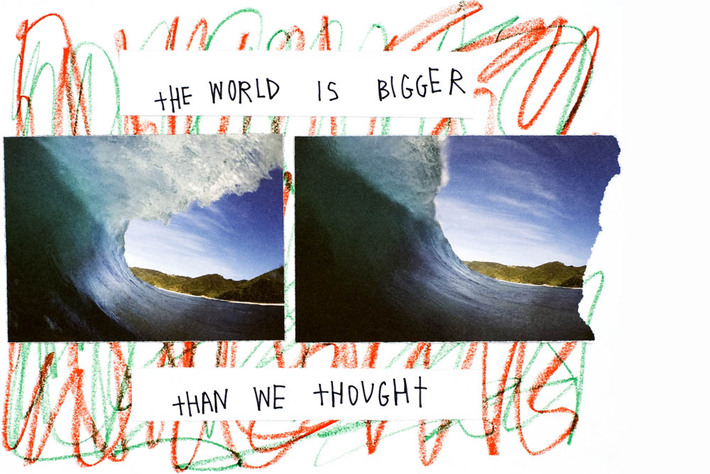 tHE WORLD IS BIGGER
tHAN WE tHOUGHt